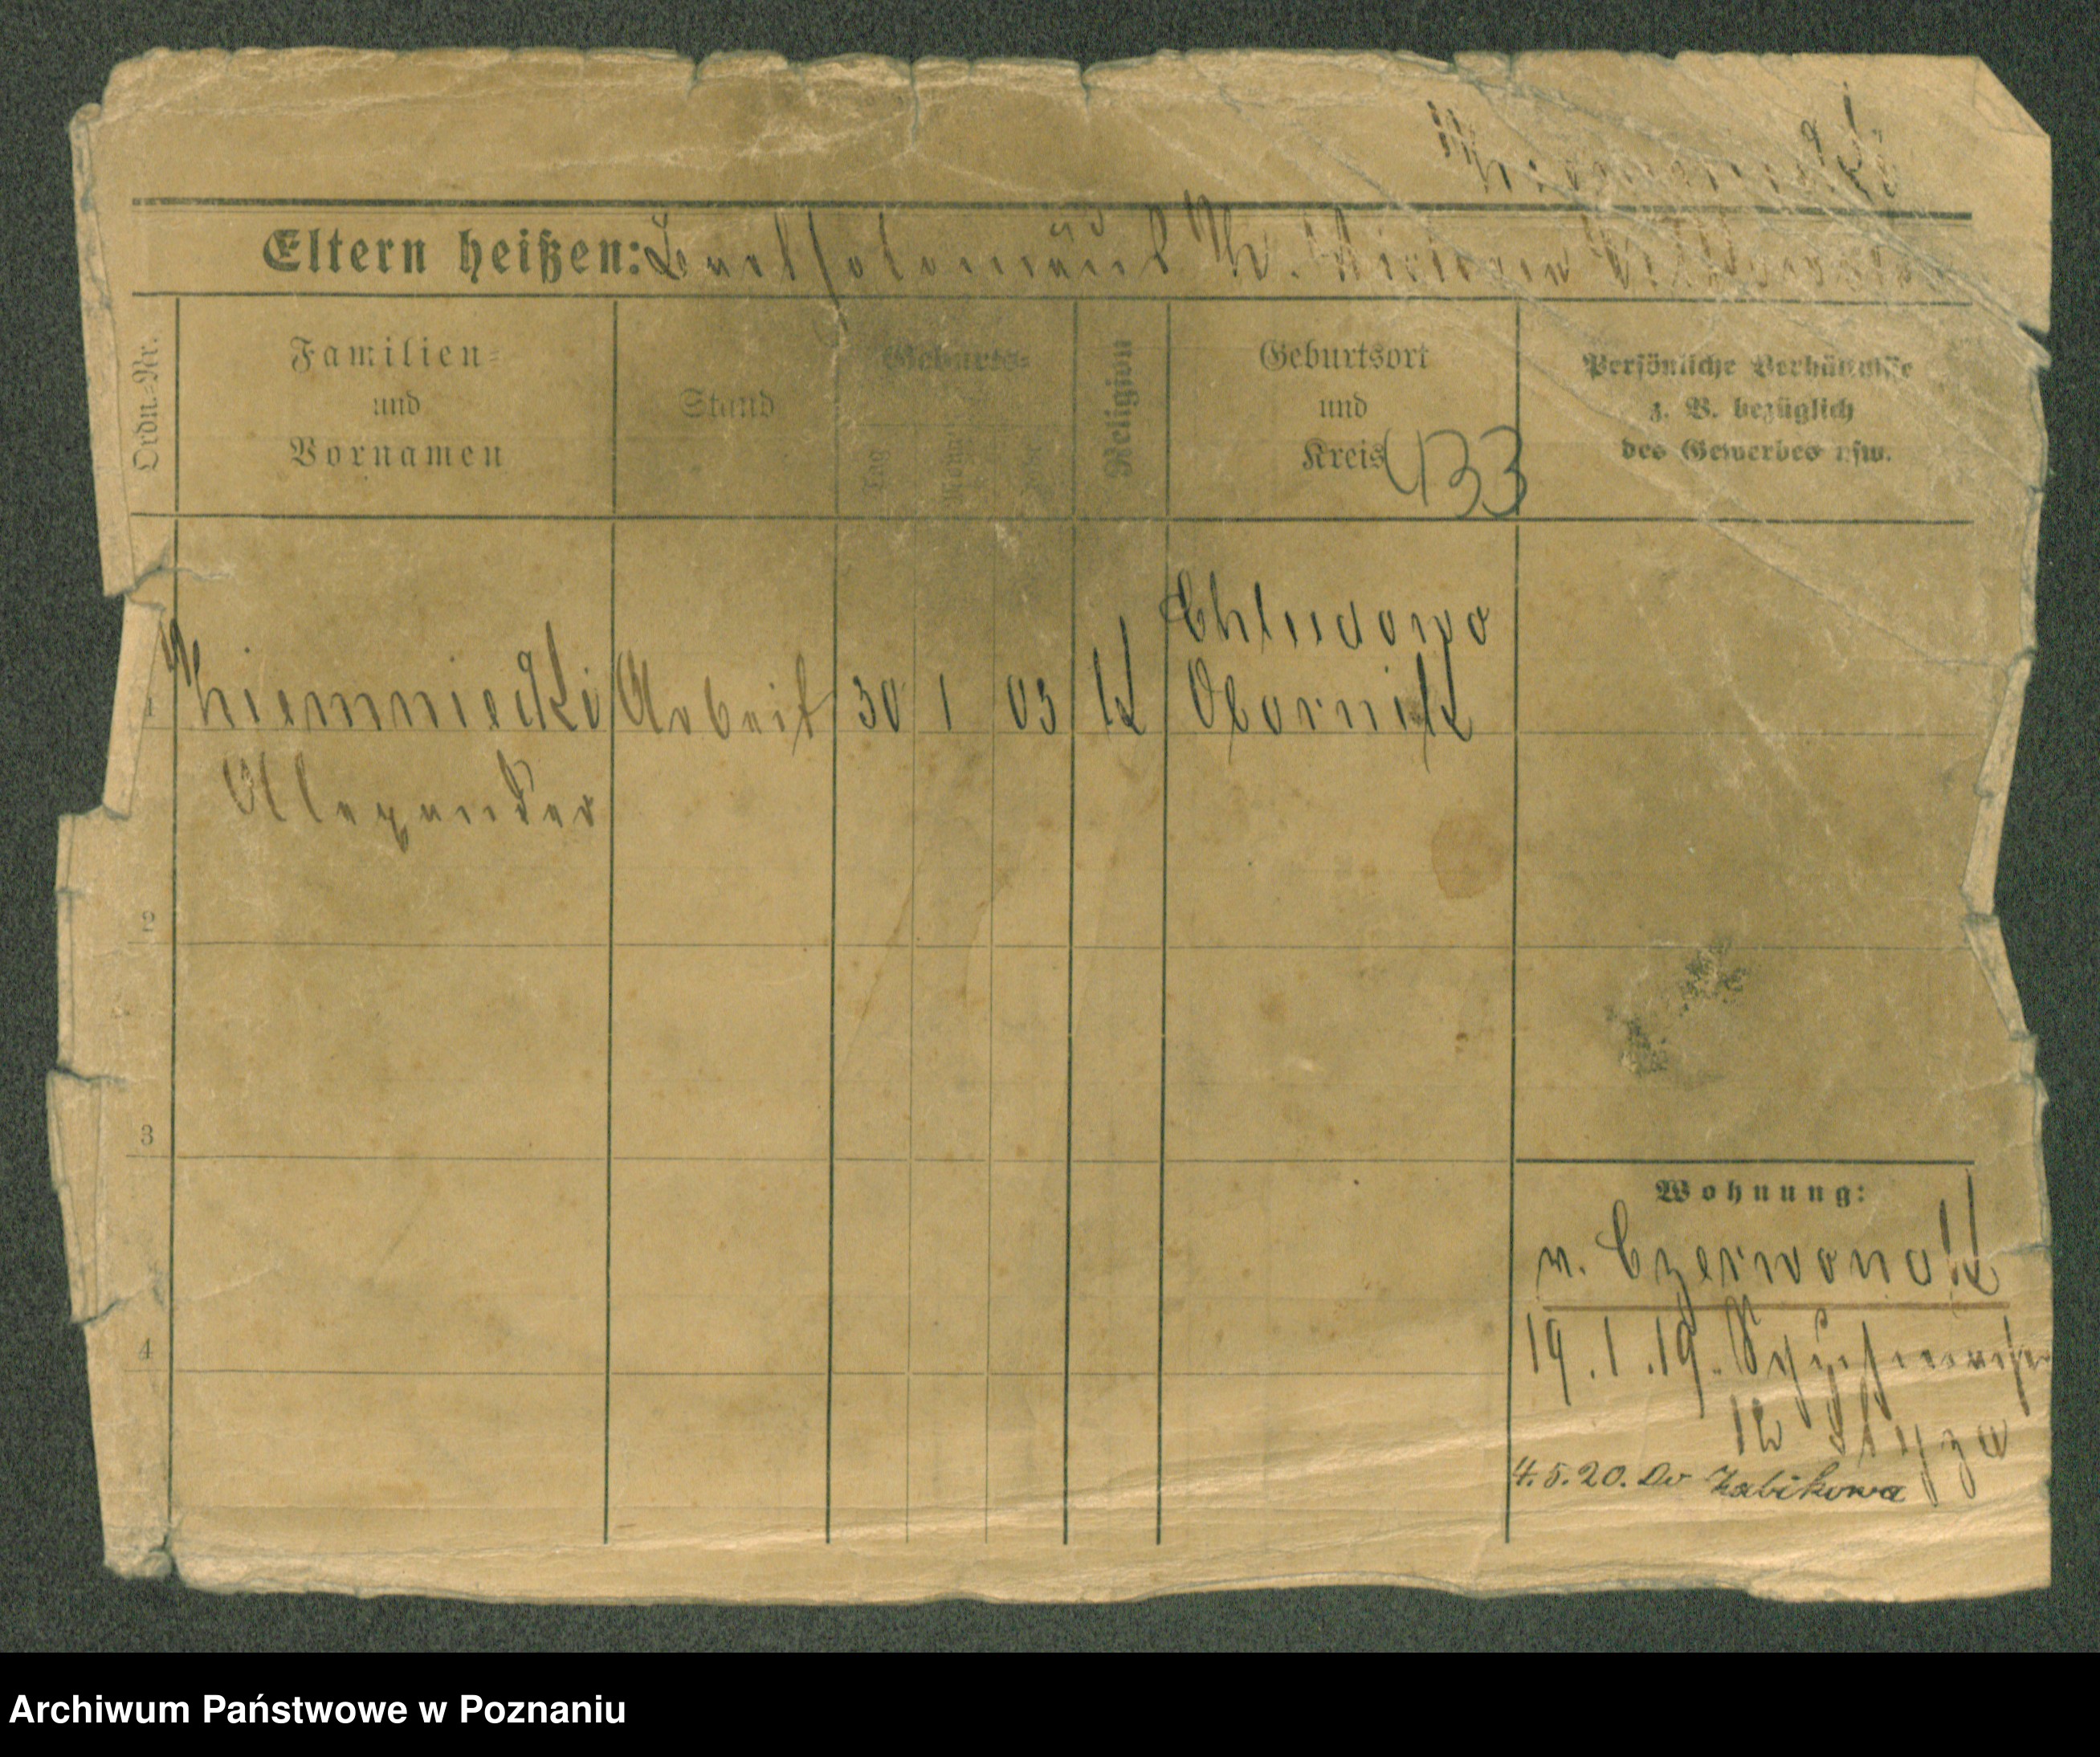 Eltern heißen: Bartholomäus
Ordn.-Nr.
Familien-
und
Vornamen
Stand
Geburts-
Tag
Monat
Jahr
Religion
Geburtsort
und
Kreis
433
Persönliche Verhältnisse
z. B. bezüglich
des Gewerbes usw.
Chludowo
1 Niemniecki Arbeit 30 1 03 K Obornik
Alexander
2
3
4
Wohnung:
v. Czerwonak
19.1.19.
12
4.5.20. Do Zabikowa
Archiwum Państwowe w Poznaniu